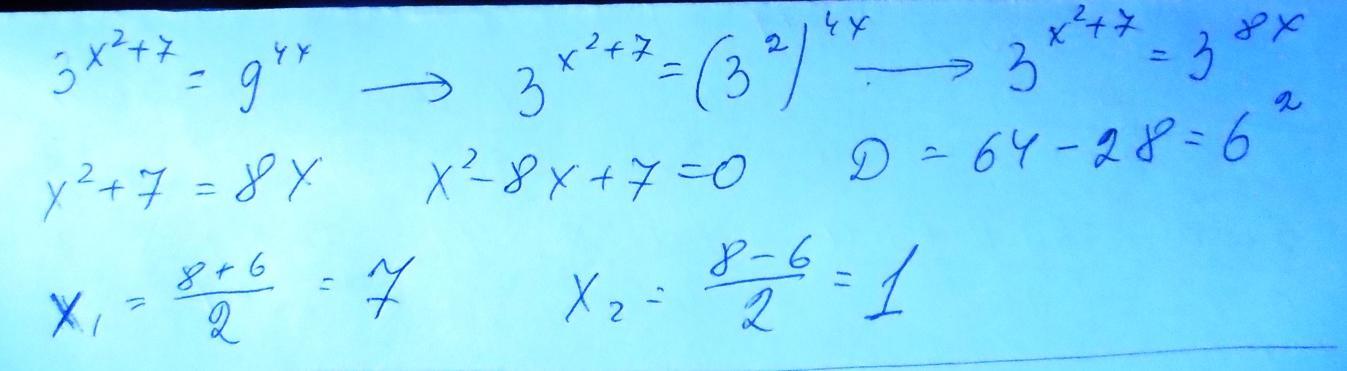 3^{x^2+7} = 9^{4x} → 3^{x^2+7} = (3^2)^{4x} → 3^{x^2+7} = 3^{8x}
x^2+7 = 8x x^2-8x+7=0 D = 64-28=6^2
x_1 = \frac{8+6}{2} = 7 x_2 = \frac{8-6}{2} = 1